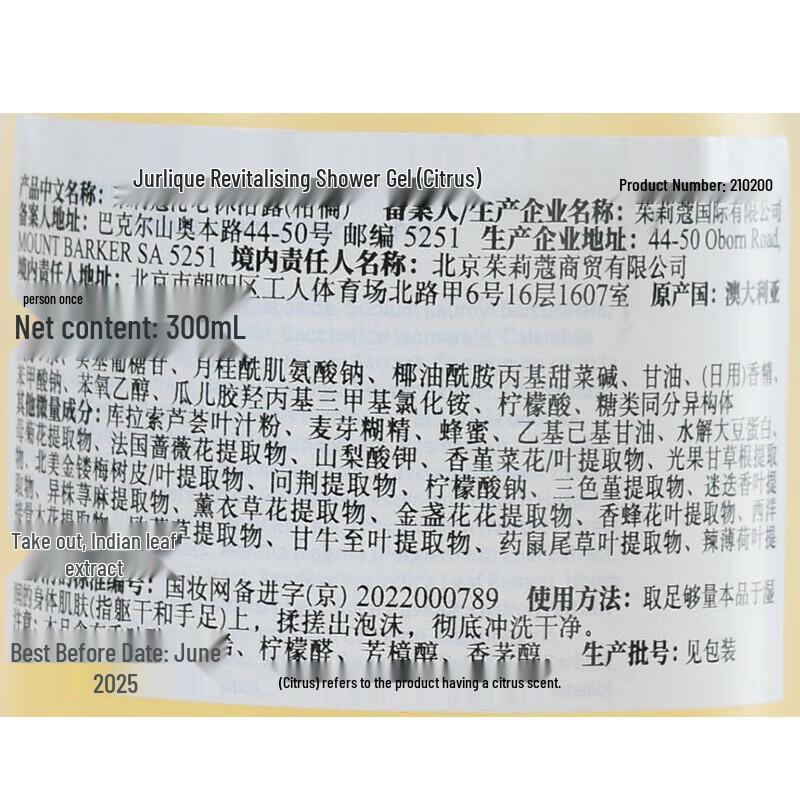 Jurlique Revitalising Shower Gel (Citrus)
Product Number: 210200
产品中文名称:
备案人/生产企业名称: 茱莉蔻国际有限公司
备案人地址: 巴克尔山奥本路44-50号 邮编 5251 生产企业地址: 44-50 Oborn Road,
MOUNT BARKER SA 5251 境内责任人名称: 北京茱莉蔻商贸有限公司
境内责任人地址: 北京市朝阳区工人体育场北路甲6号16层1607室 原产国: 澳大利亚
person once
Net content: 300mL
葡糖苷、月桂酰肌氨酸钠、椰油酰胺丙基甜菜碱、甘油、(日用)香精、
苯甲酸钠、苯氧乙醇、瓜儿胶羟丙基三甲基氯化铵、柠檬酸、糖类同分异构体
其他微量成分: 库拉索芦荟叶汁粉、麦芽糊精、蜂蜜、乙基己基甘油、水解大豆蛋白、
母菊花提取物、法国蔷薇花提取物、山梨酸钾、香堇菜花/叶提取物、光果甘草根提取
物、北美金镂梅树皮/叶提取物、问荆提取物、柠檬酸钠、三色堇提取物、迷迭香叶提
取物、异株荨麻提取物、薰衣草花提取物、金盏花花提取物、香蜂花叶提取物、西洋
草提取物、甘牛至叶提取物、药鼠尾草叶提取物、辣薄荷叶提
Take out, Indian leaf
extract
标准编号: 国妆网备进字(京) 2022000789 使用方法: 取足够量本品于湿
润的身体肌肤(指躯干和手足)上，揉搓出泡沫，彻底冲洗干净。
柠檬醛、芳樟醇、香茅醇 生产批号: 见包装
Best Before Date: June
2025
(Citrus) refers to the product having a citrus scent.